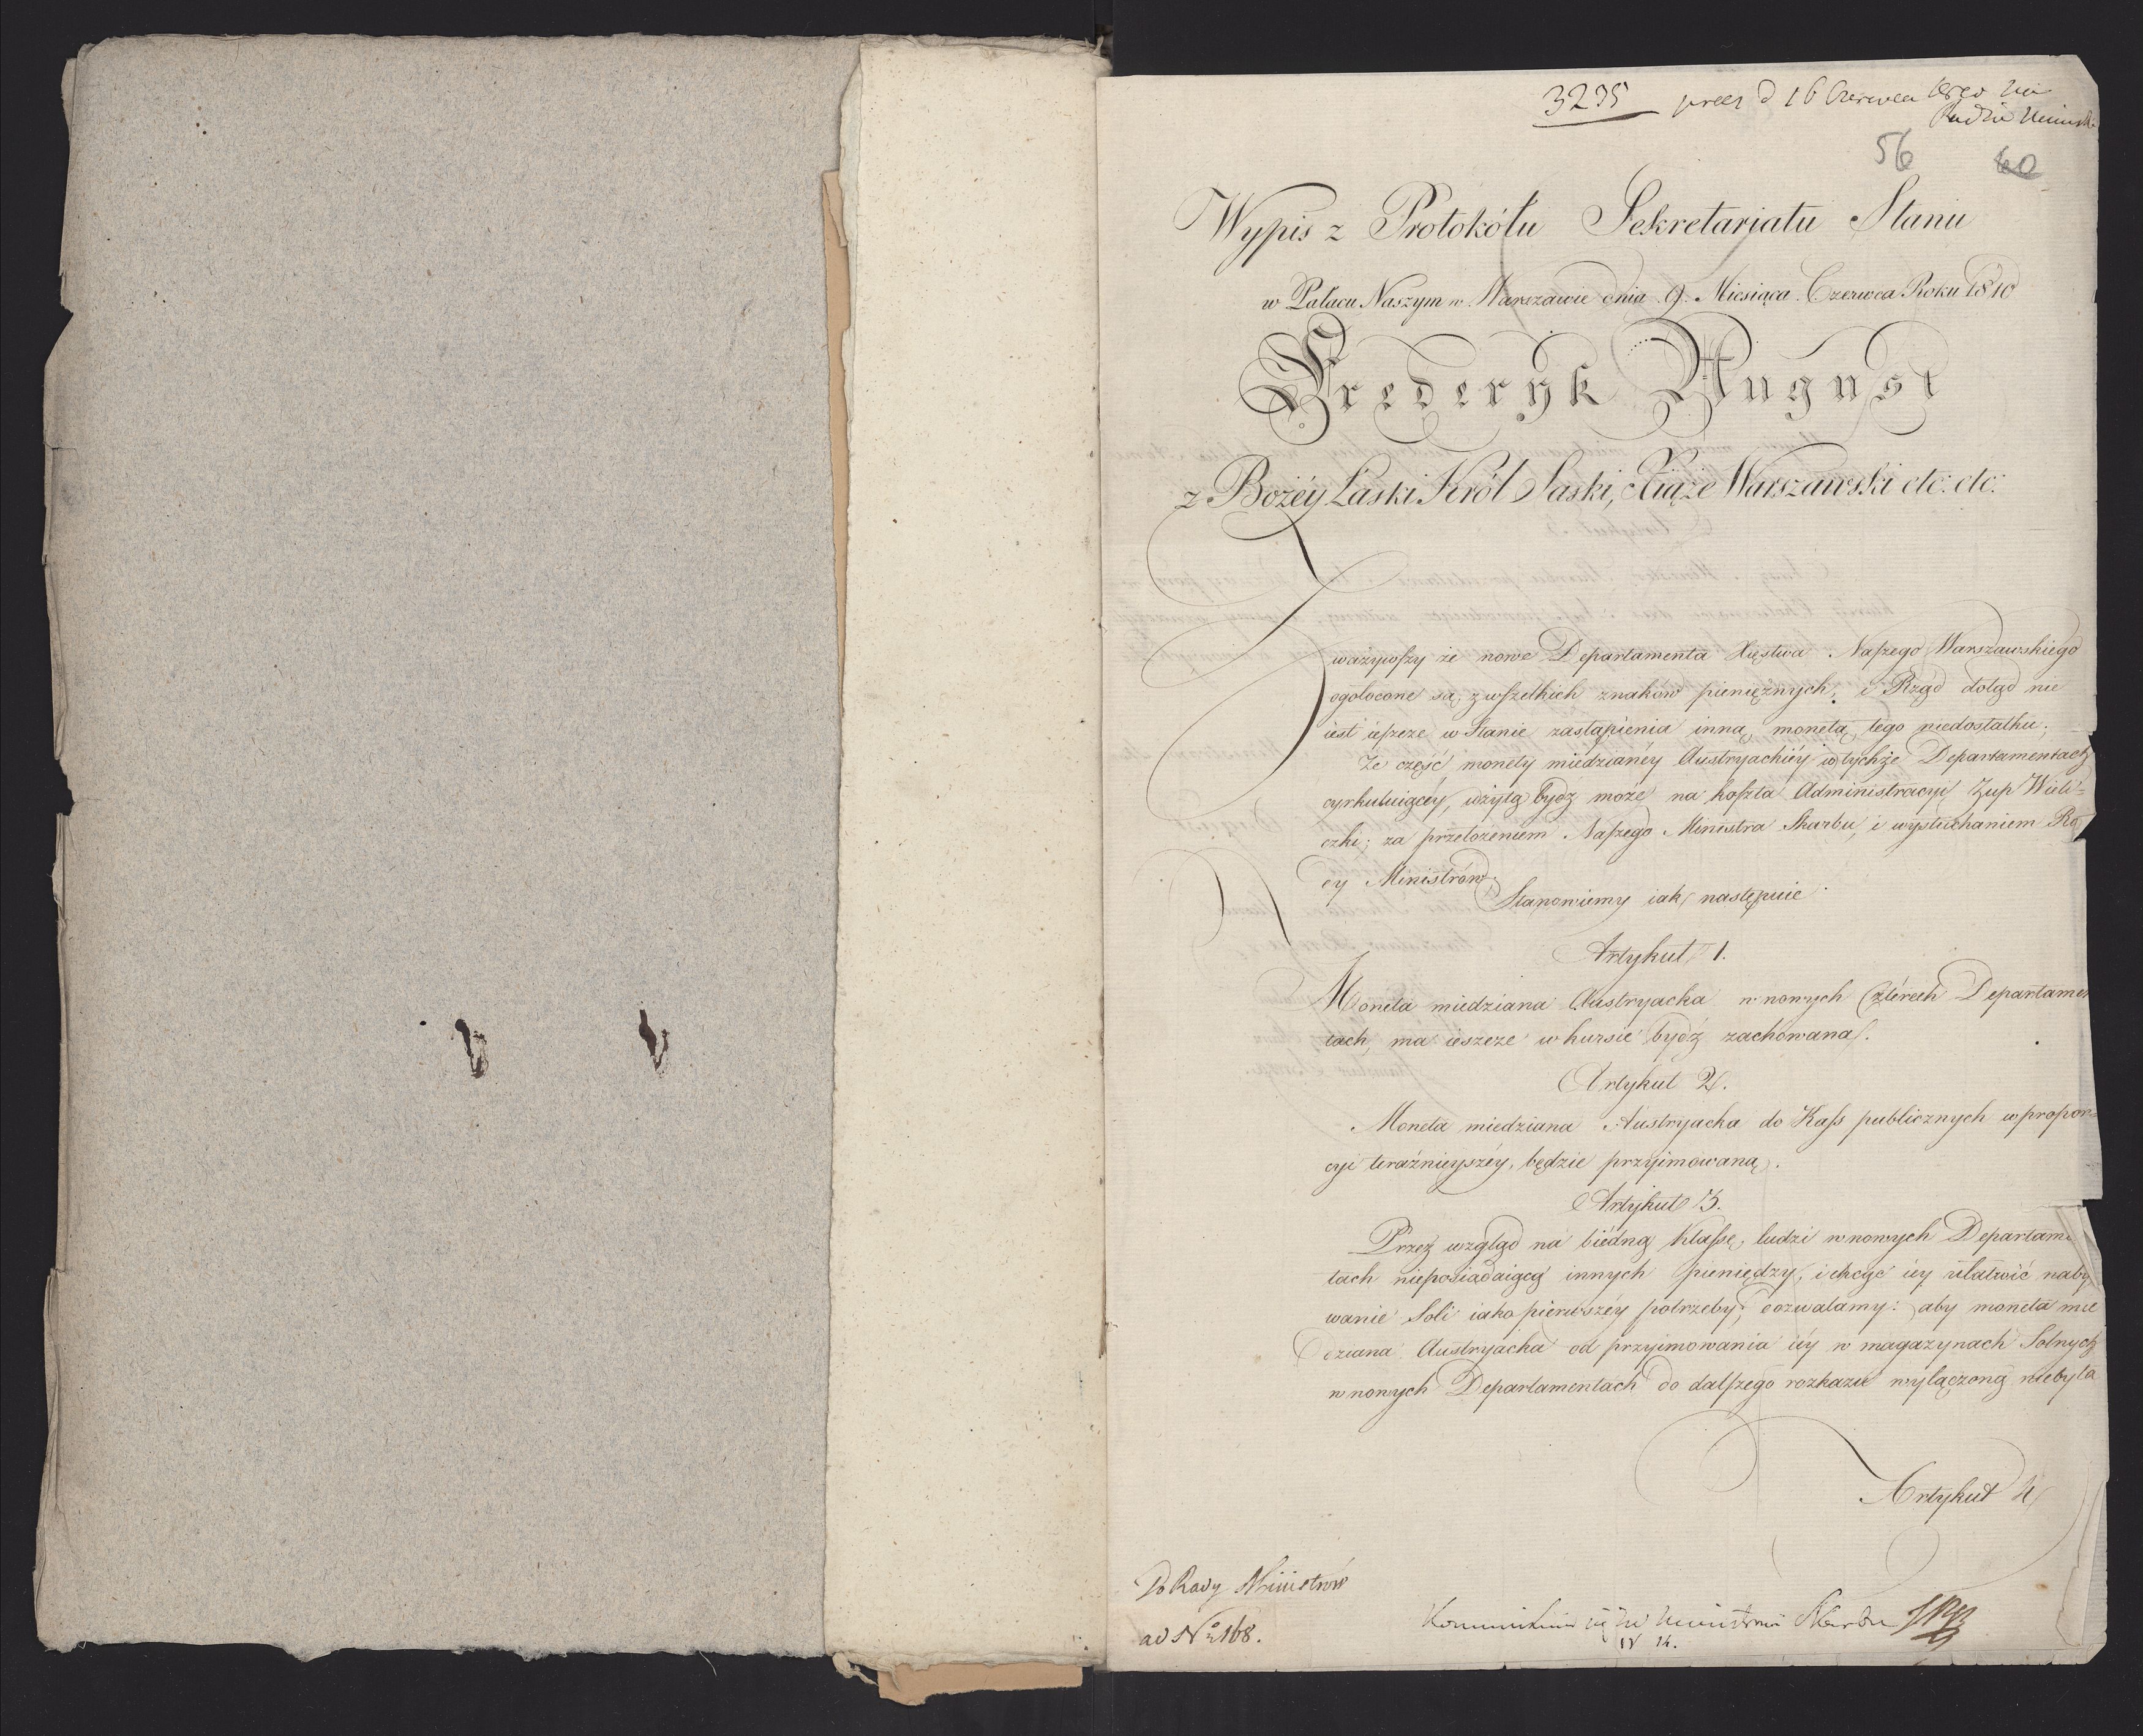 3295 prez d 16 Czerwca
56 60
Wypis z Protokółu Sekretariatu Stanu
w Pałacu Naszym w Warszawie dnia 9. Miesiąca Czerwca Roku 1810
Frederyk August
z Bożéy Łaski Król Saski, Xiąże Warszawski etc: etc:
Zważywſzy że nowe Departamenta Xięstwa Naſzego Warszawskiego
ogołocone są z wſzelkich znaków pieniężnych, i Rząd dotąd nie
iest ieſzcze w Stanie zastąpienia inną monetą tego niedostatku;
Że część monety miedzianéy Austryackiéy w tychże Departamentach
cyrkuluiącéy, użytą bydz może na koſzta Administracyi Żup Wieli=
czki; za przełożeniem Naſzego Ministra Skarbu, i wysłuchaniem Ra
dy Ministrów;
Stanowiemy iak następuie
Artykuł 1.
Moneta miedziana Austryacka w nowych Czterech Departamen
tach, ma ieszcze w kursie bydź zachowana.
Artykuł 2.
Moneta miedziana Austryacka do Kaſs publicznych w propor=
cyi teraźnieyszéy, będzie przyimowaną.
Artykuł 3.
Przez wzgląd na biédną Klaſsę ludzi w nowych Departamen
tach nieposiadaiącą innych pieniędzy, i chcąc iéy ułatwić naby
wanie Soli iako pierwszéy potrzeby, dozwalamy: aby moneta mie
dziana Austryacka od przyimowania iéy w magazynach Solnych
w nowych Departamentach do dalſzego rozkazu wyłączoną niebyła
Artykuł 4
Do Rady Ministrów
ad No 168.
Ministrowi Skarbu